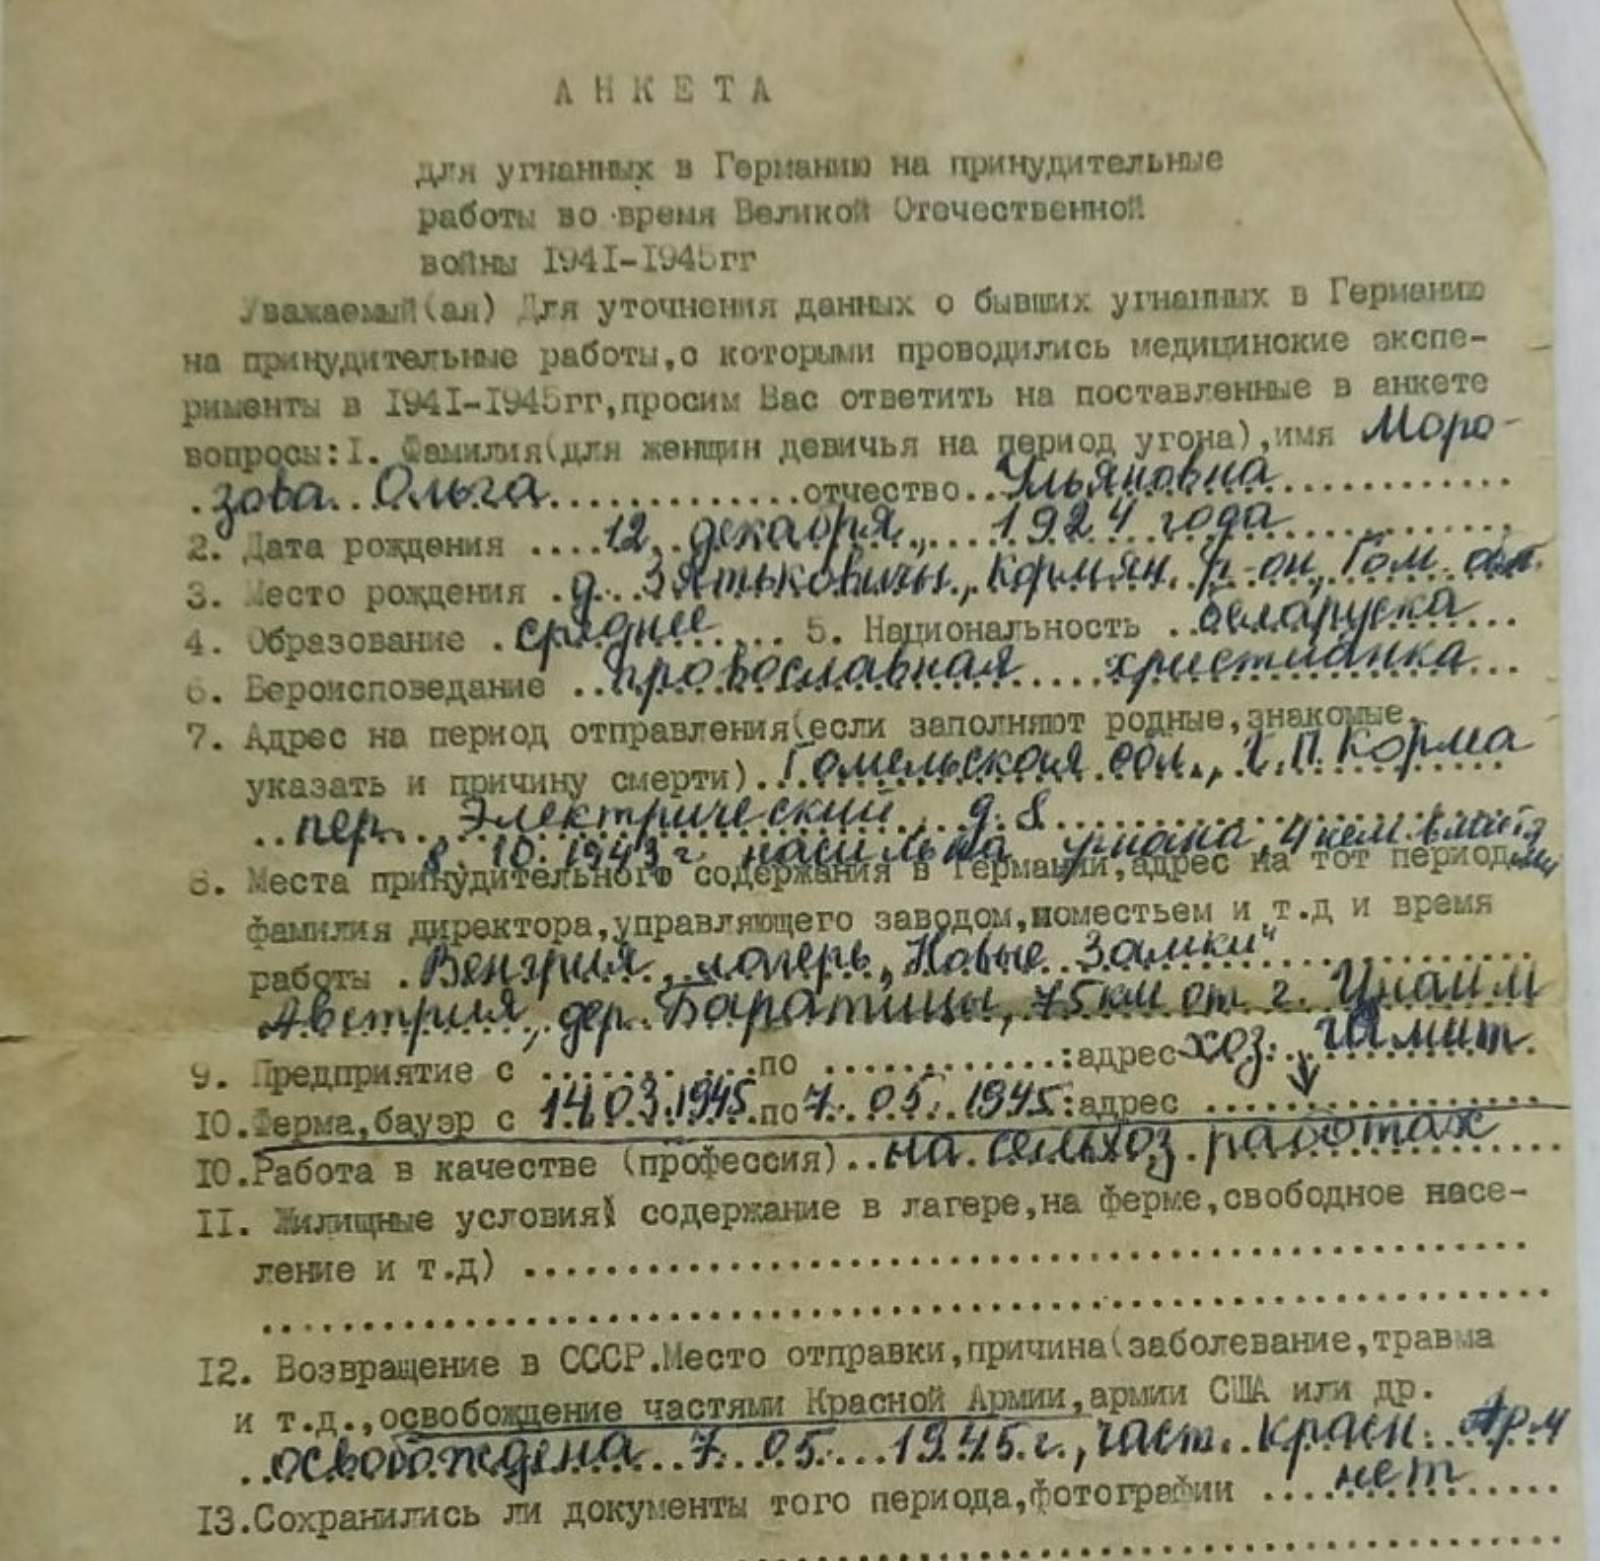 АНКЕТА
для угнанных в Германию на принудительные
работы во время Великой Отечественной
войны 1941-1945гг
Уважаемый(ая) Для уточнения данных о бывших угнанных в Германию
на принудительные работы,с которыми проводились медицинские экспе-
рименты в 1941-1945гг,просим Вас ответить на поставленные в анкете
вопросы:1. Фамилия(для женщин девичья на период угона),имя Моро-
.зова..Ольга.............отчество..Ульяновна..............
2. Дата рождения ....12..декабря.,...1924 года..............
3. Место рождения .д...Зятьковичы.,кормян. р-он, Гом. обл.
4. Образование .среднее.... 5. Национальность ..беларуска...
6. Вероисповедание ..провославная....христианка...
7. Адрес на период отправления(если заполняют родные,знакомые,
указать и причину смерти)..Гомельская обл., г.п. Корма
..пер...Электрический...д.8..............................
8.10.1943 г. насильна угнана, 4 нем.
8. Места принудительного содержания в Германии,адрес на тот период,
фамилия директора,управляющего заводом,поместьем и т.д и время
работы .Венгрия, лагерь „Новые Замки"..............
Австрия, дер. Баратицы, 75 км от г. Цнайм
9. Предприятие с ..........по ............:адрес хоз. Шмит
10.Ферма,бауэр с 14.03.1945.по 7. 05. 1945:адрес .................
10.Работа в качестве (профессия)..на.сельхоз.работах....
11. Жилищные условия( содержание в лагере,на ферме,свободное насе-
ление и т.д) ..................................................
.................................................................
12. Возвращение в СССР.Место отправки,причина(заболевание,травма
и т.д.,освобождение частями Красной Армии,армии США или др.
..освобождена..7..05...1945.г.,част..Красн..Арм
13.Сохранились ли документы того периода,фотографии ....нет......